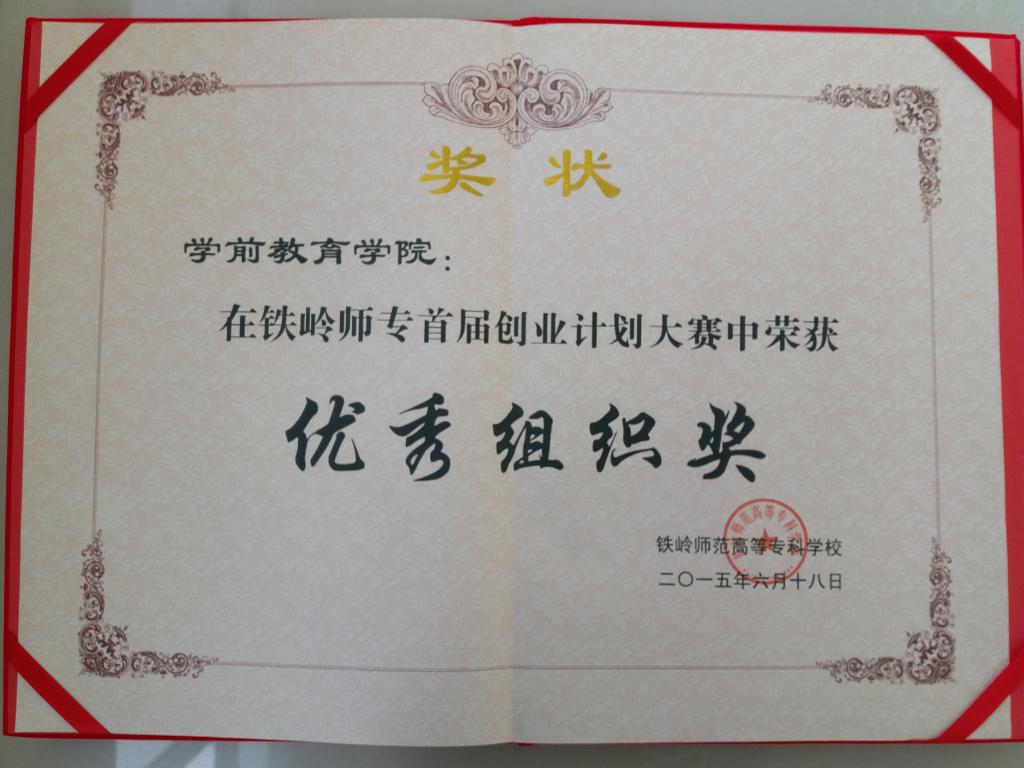 奖状
学前教育学院：
在铁岭师专首届创业计划大赛中荣获
优秀组织奖
铁岭师范高等专科学校
二〇一五年六月十八日